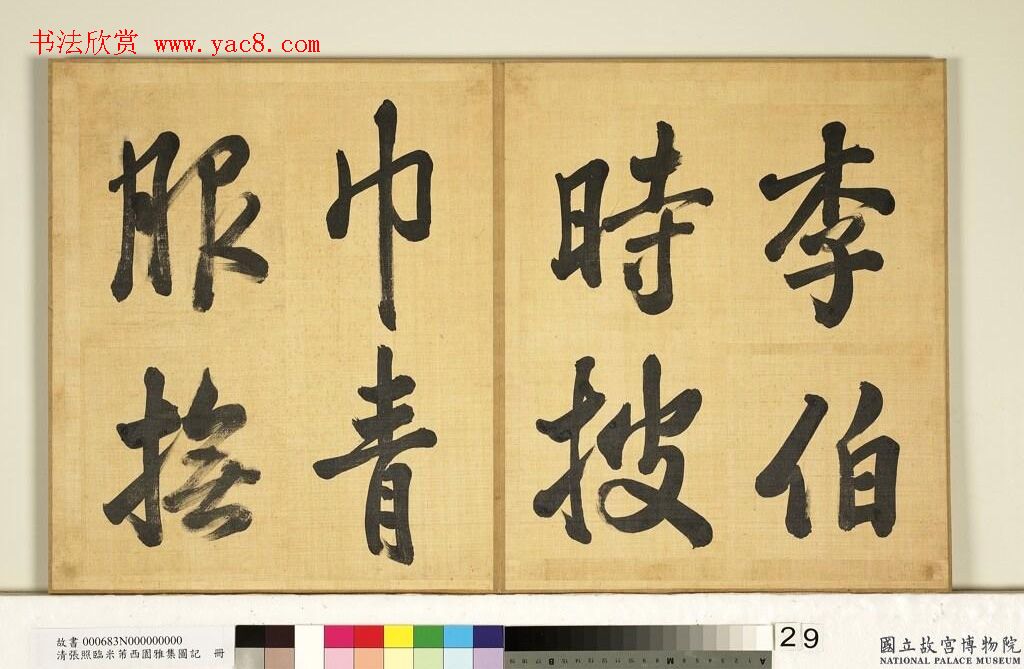 书法欣赏 www.yac8.com
李伯
時披
巾青
服撫
故書 000683N000000000
清張照臨米芾西園雅集圖記 冊
29
國立故宮博物院
NATIONAL PALACE MUSEUM